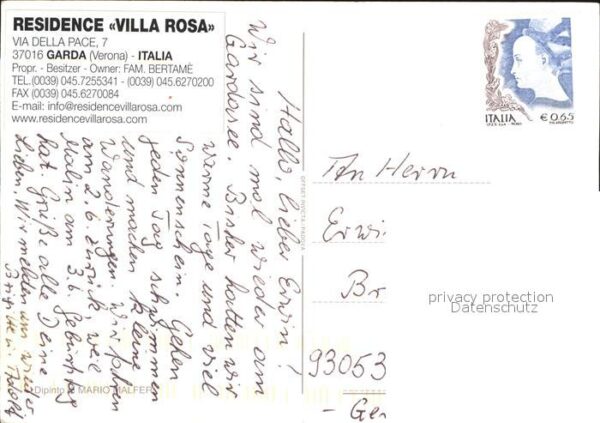 RESIDENCE «VILLA ROSA»
VIA DELLA PACE, 7
37016 GARDA (Verona) - ITALIA
Propr. - Besitzer - Owner: FAM. BERTAMÈ
TEL.(0039) 045.7255341 - (0039) 045.6270200
FAX (0039) 045.6270084
E-mail: info@residencevillarosa.com
www.residencevillarosa.com
Hallo, lieber Erwin!
Wir sind mal wieder am
Gardasee. Bisher hatten wir
warme Tage und viel
Sonnenschein. Gehen
jeden Tag schwimmen
und machen kleine
Wanderungen. Wir fahren
am 2.6. zurück, weil
Malin am 3.6. Geburtstag
hat. Grüße alle Deine
Lieben. Wir melden uns wieder
ITALIA
€ 0,65
An Herrn
Erwi
Br
privacy protection
Datenschutz
93053
- Ger
Dipinto di MARIO MALFER